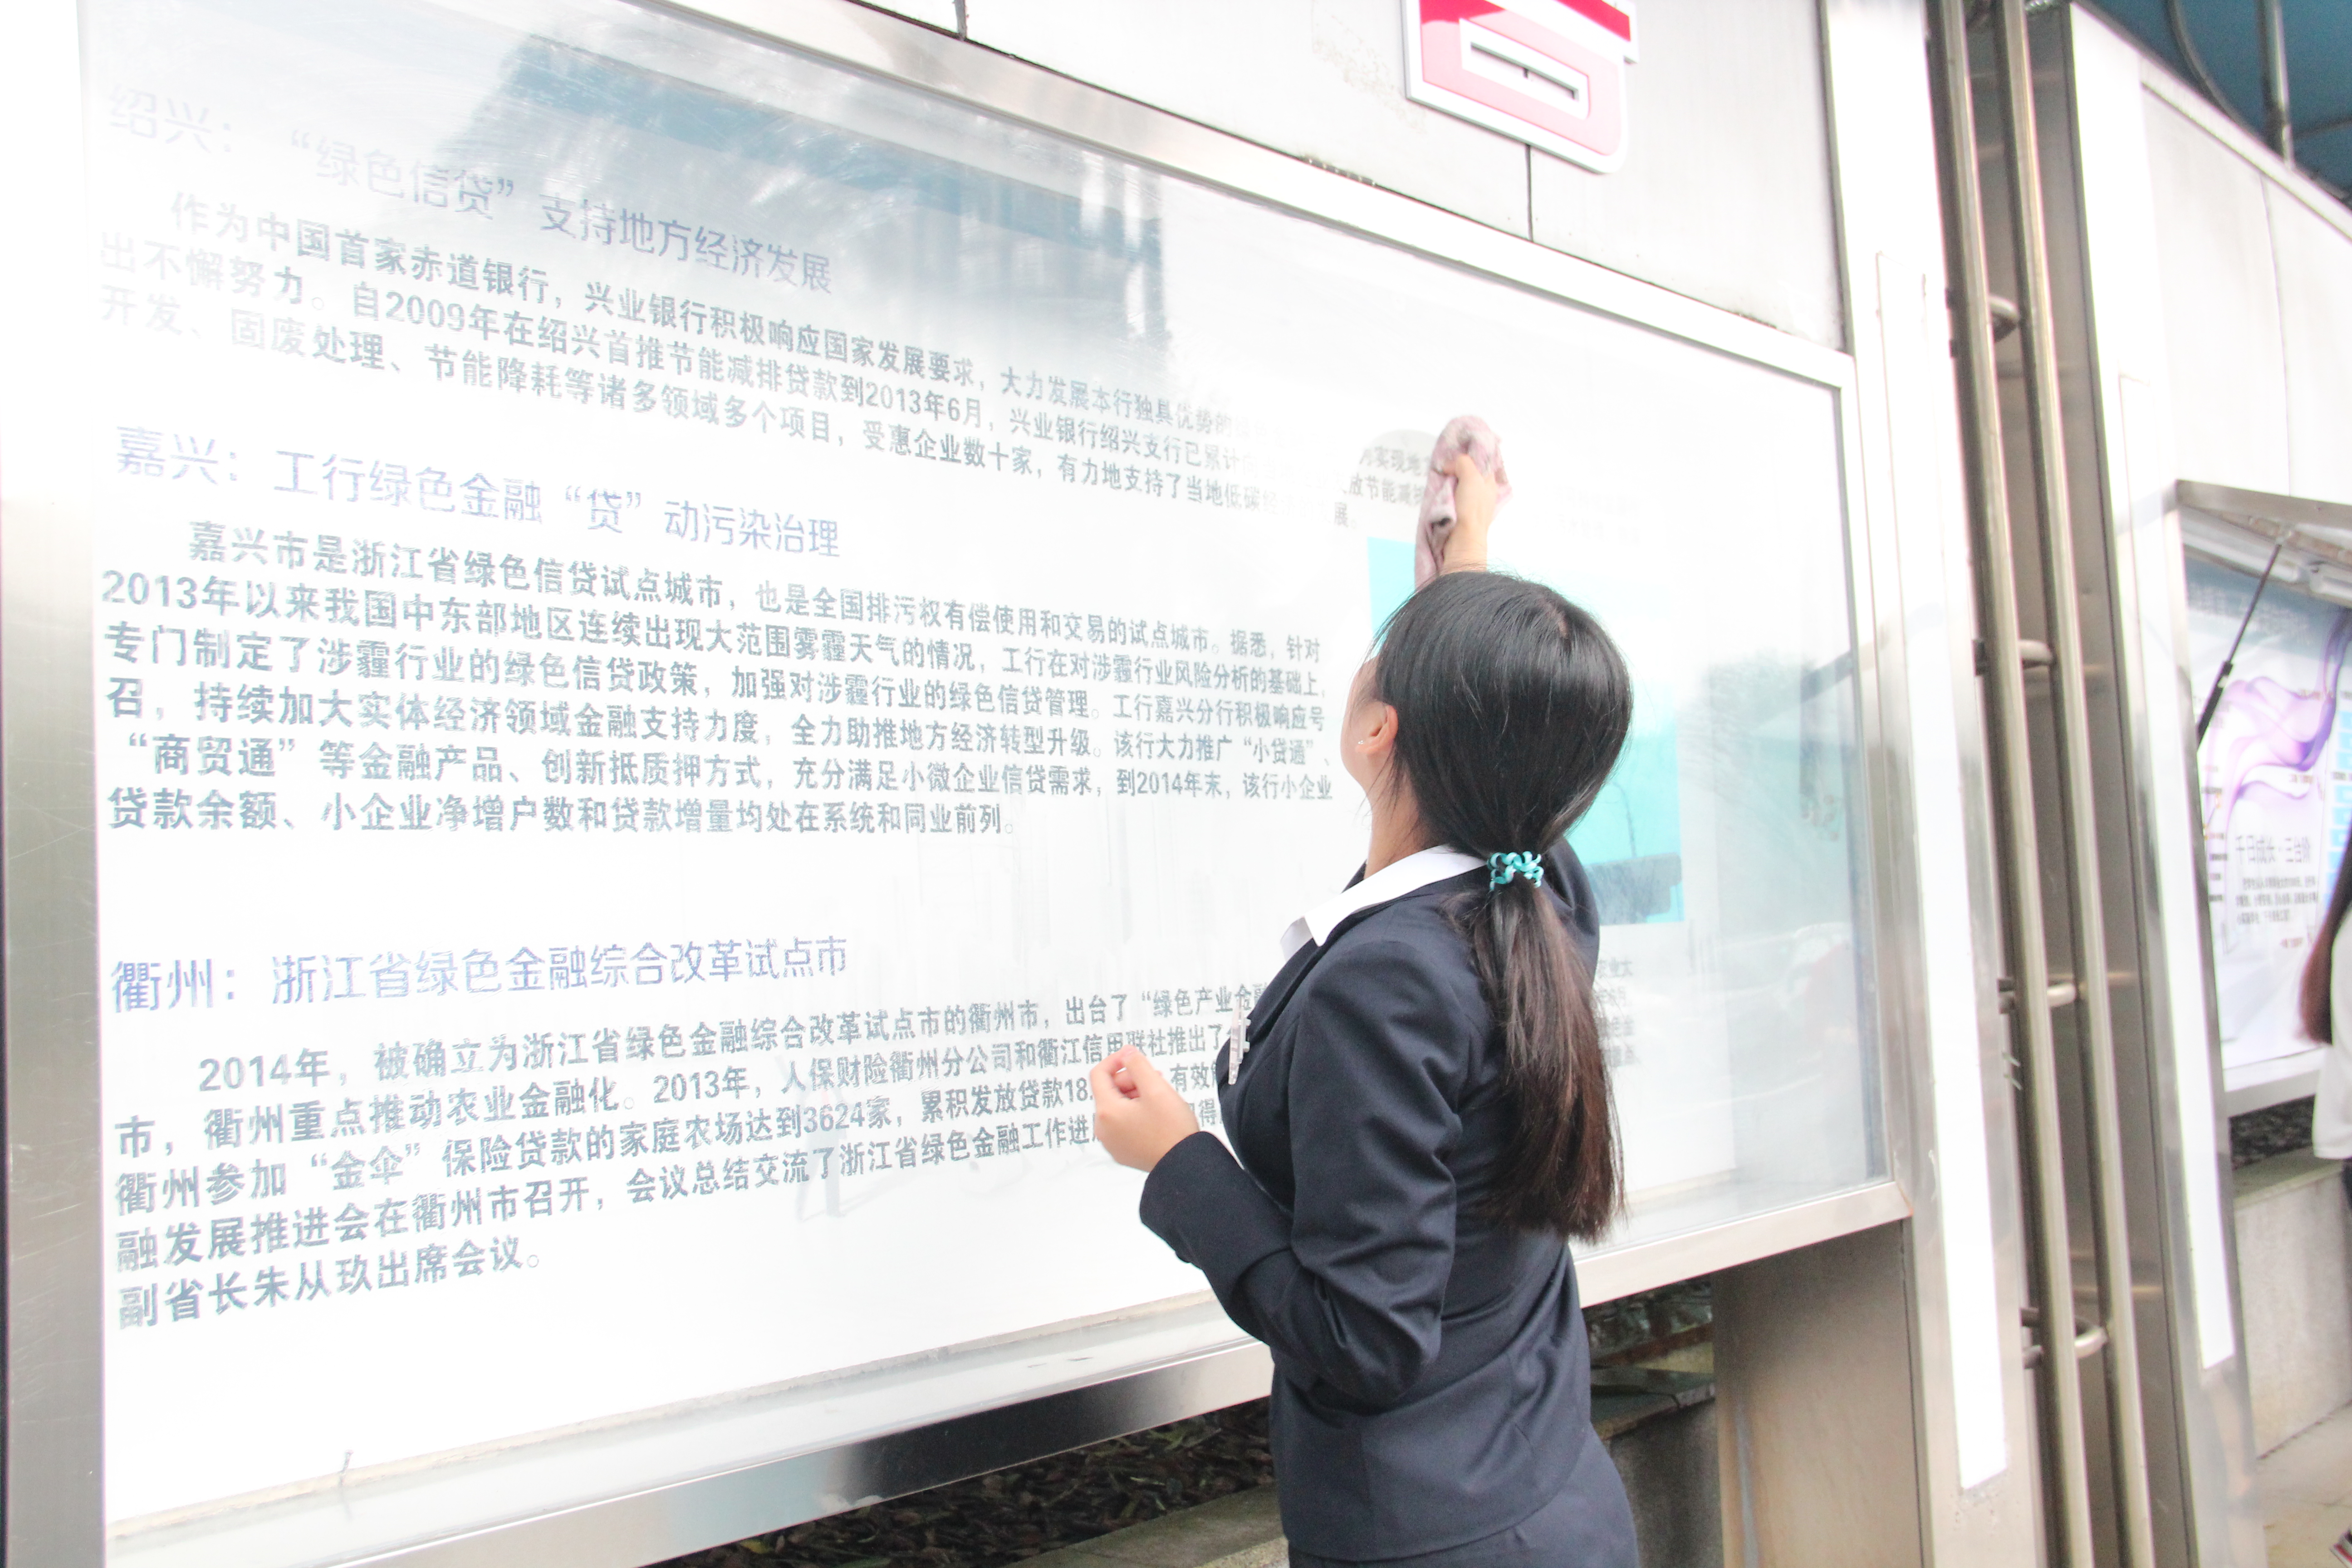 绍兴：“绿色信贷”支持地方经济发展
作为中国首家赤道银行，兴业银行积极响应国家发展要求，大力发展本行独具优势的
出不懈努力。自2009年在绍兴首推节能减排贷款到2013年6月，兴业银行绍兴支行已累计 放节能减
开发、固废处理、节能降耗等诸多领域多个项目，受惠企业数十家，有力地支持了当地低碳 展。
嘉兴：工行绿色金融“贷”动污染治理
嘉兴市是浙江省绿色信贷试点城市，也是全国排污权有偿使用和交易的试点城市。据悉，针对
2013年以来我国中东部地区连续出现大范围雾霾天气的情况，工行在对涉霾行业风险分析的基础上，
专门制定了涉霾行业的绿色信贷政策，加强对涉霾行业的绿色信贷管理。工行嘉兴分行积极响应号
召，持续加大实体经济领域金融支持力度，全力助推地方经济转型升级。该行大力推广“小贷通”、
“商贸通”等金融产品、创新抵质押方式，充分满足小微企业信贷需求，到2014年末，该行小企业
贷款余额、小企业净增户数和贷款增量均处在系统和同业前列。
衢州：浙江省绿色金融综合改革试点市
2014年，被确立为浙江省绿色金融综合改革试点市的衢州市，出台了“绿色产业金融
市，衢州重点推动农业金融化。2013年，人保财险衢州分公司和衢江信用联社推出了
衢州参加“金伞”保险贷款的家庭农场达到3624家，累积发放贷款18. 有效
融发展推进会在衢州市召开，会议总结交流了浙江省绿色金融工作进
副省长朱从玖出席会议。
千日成长·三台阶